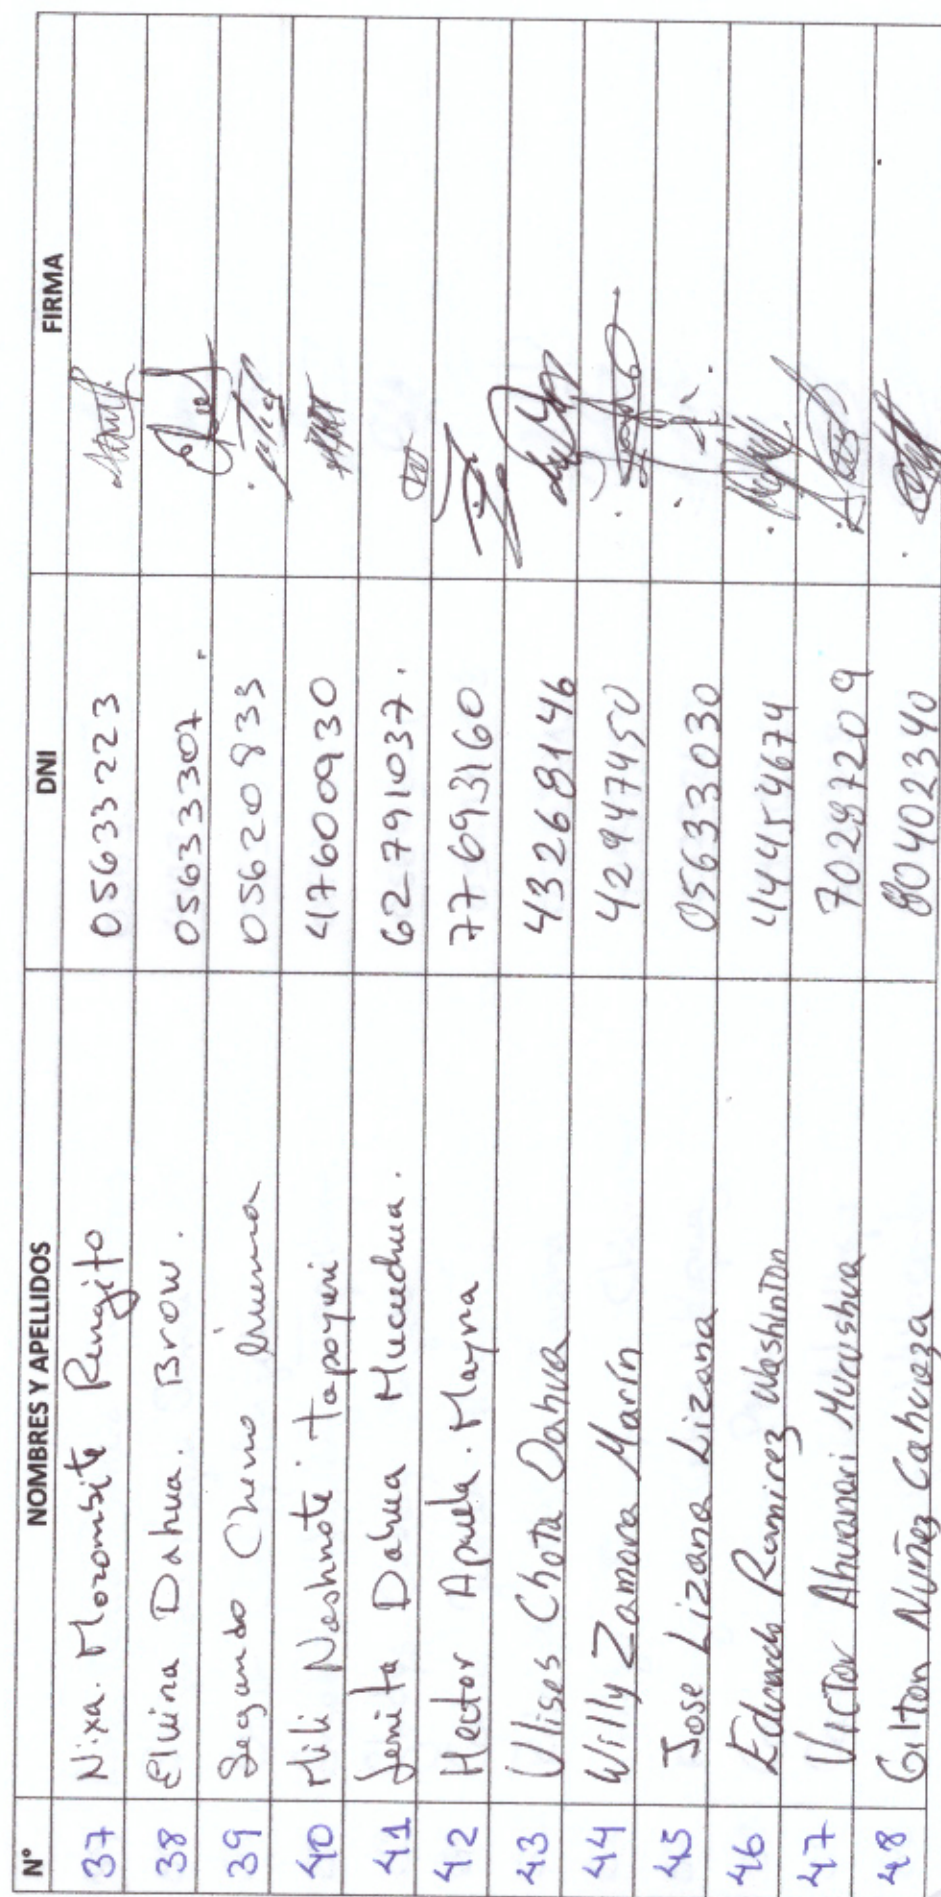 N° NOMBRES Y APELLIDOS DNI FIRMA
37 Nixa. Mozombite Rengifo 05633223
38 Elvina Dahua. Brow. 05633307.
39 Segundo Chino 05620833
40 Mili Nashnate Tapoyuri 47600930
41 Jenita Dahua 62791037.
42 Hector Apuela. Mayna 77693160
43 Ulises Chota Dahua 43268146
44 Willy Zamora Marín 42947450
45 Jose Lizana Lizana 05633030
46 Eduardo Ramirez Washinton 44454674
47 Victor Ahuanari Murushua 70297209
48 Gilton Nuñez Cahuaza 80402340